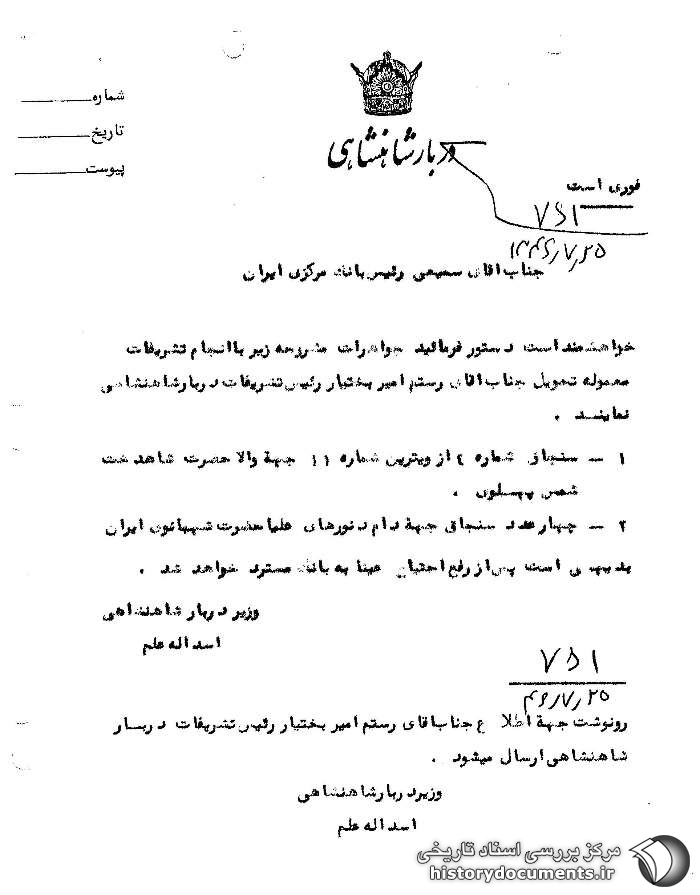 شماره
تاریخ
پیوست
دربار شاهنشاهی
فوری است
۷۵۱
۱۳۴۶/۷/۲۵
جناب آقای سمیعی رئیس بانک مرکزی ایران
خواهشمند است دستور فرمائید جواهرات مشروحه زیر با انجام تشریفات
معموله تحویل جناب آقای رستم امیر بختیار رئیس تشریفات دربار شاهنشاهی
نمایند .
۱ – سنجاق شماره ٤ از ویترین شماره ۱۱ جهة والاحضرت شاهدخت
شمس پهلوی .
۲ – چهار عدد سنجاق جهة دام دنورهای علیاحضرت شهبانوی ایران
بدیهی است پس از رفع احتیاج عینا به بانک مسترد خواهد شد .
وزیر دربار شاهنشاهی
اسداله علم
۷۵۱
۴۶/۷/۲۵
رونوشت جهة اطلاع جناب آقای رستم امیر بختیار رئیس تشریفات دربار
شاهنشاهی ارسال میشود .
وزیر دربار شاهنشاهی
اسداله علم
مرکز بررسی اسناد تاریخی
historydocuments.ir